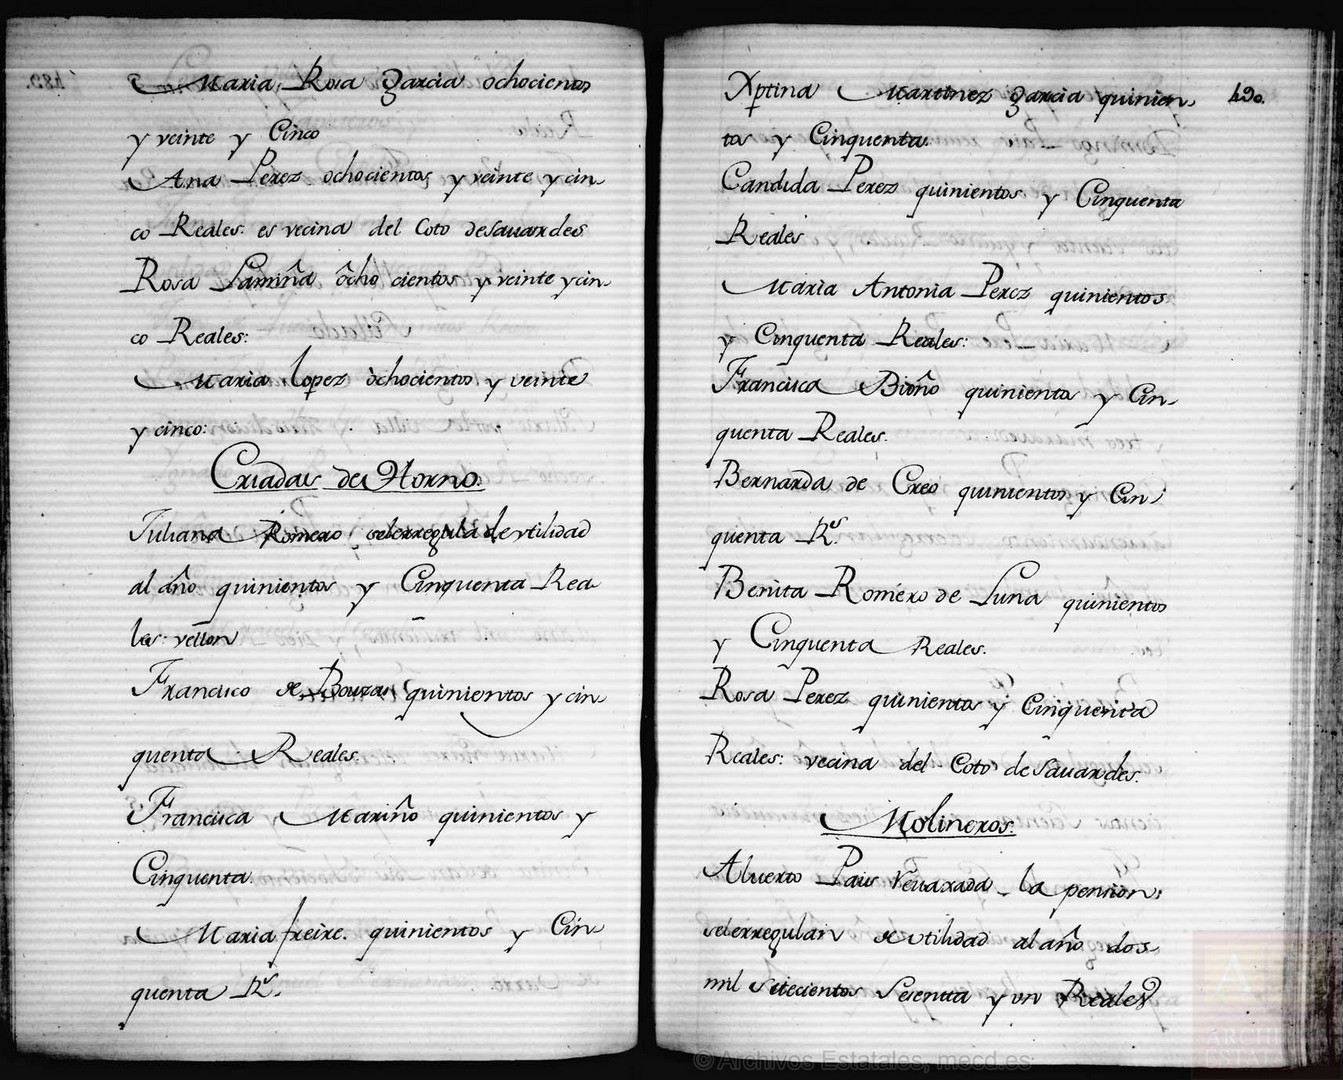 Maria Rosa Garcia ochocientos
y veinte y Cinco
Ana Perez ochocientos y veinte y cin-
co Reales. es vecina del Coto de Sauardes
Rosa Lamiña ôcho cientos y veinte y cin-
co Reales:
Maria lopez ôchocientos y veinte
y cinco:
Criadas de Horno.
Juliana Romero selerregula de vtilidad
al año quinientos y Cinquenta Rea-
les vellon
Francisco de Bouzas quinientos y cin-
quenta Reales
Francisca Mariño quinientos y
Cinquenta.
Maria freire. quinientos y Cin-
quenta Rs.
Xptina Martinez Garcia quinien-
tos y Cinquenta
490.
Candida Perez quinientos y Cinquenta
Reales
Maria Antonia Perez quinientos
y Cinquenta Reales:
Francisca quinientos y Cin-
quenta Reales.
Bernarda de Creo quinientos y Cin-
quenta Rs.
Benita Romero de Luna quinientos
y Cinquenta Reales.
Rosa Perez quinientos y Cinquenta
Reales: vecina del Coto de Sauardes.
Molineros.
Alverto Pais revaxada la pension
selerregulan de vtilidad al año dos
mil setecientos sesentta y vn Reales
© Archivos Estatales, mecd.es